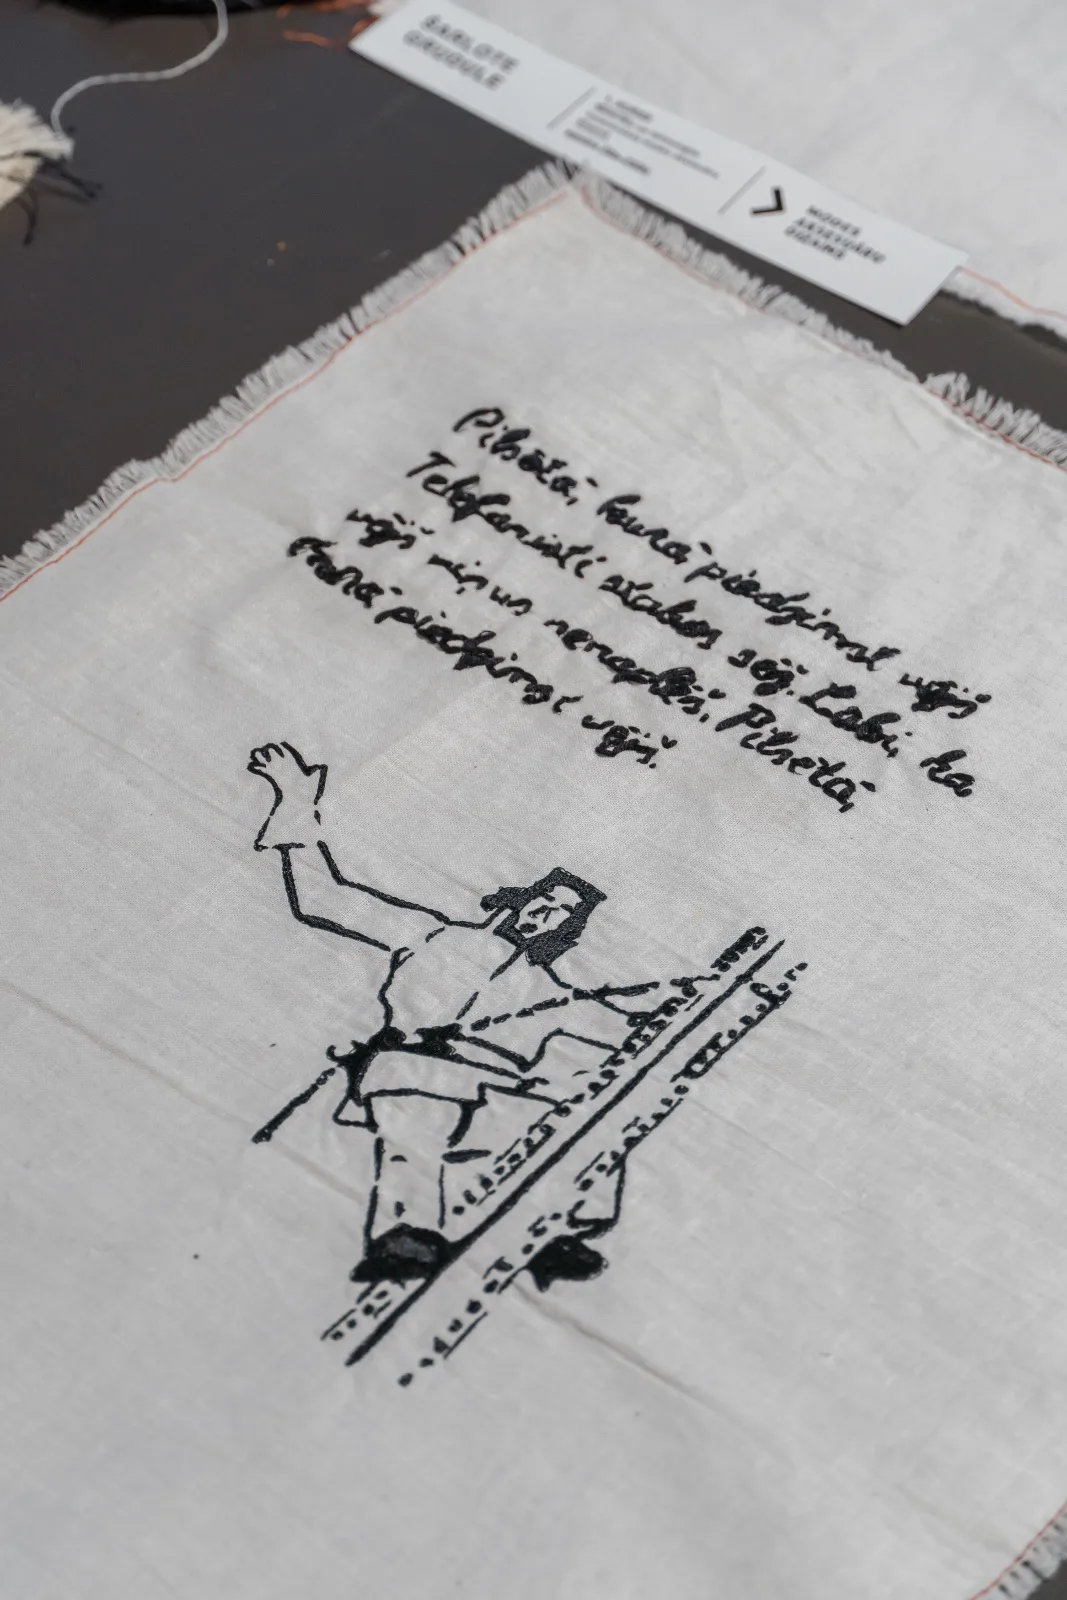 ŠARLOTE
GRUGULE
MODES
AKSESUĀRU
DIZAINS
Pilsētā, kurā piedzimst vējš
Telefonisti stabos sēž. Labi, ka
vējš viņus nenoplēš. Pilsētā,
kurā piedzimst vējš.